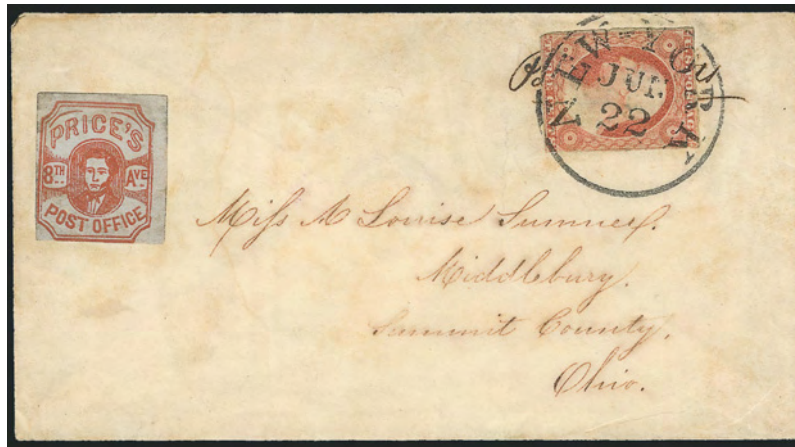 PRICE'S
8TH AVE
POST OFFICE
NEW-YORK
JUN
22
Miss M Louise Sumner.
Middlebury.
Summit County.
Ohio.